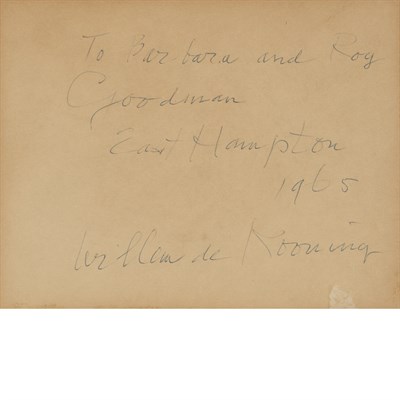 To Barbara and Roy
Goodman
East Hampton
1965
Willem de Kooning